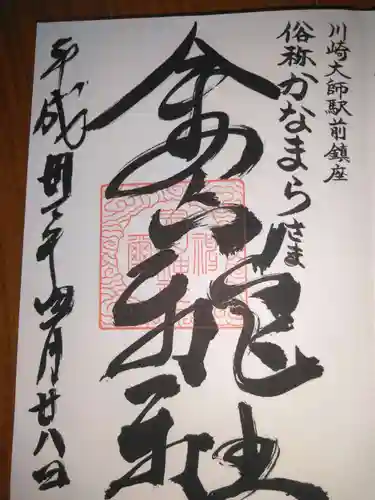 川崎大師駅前鎮座
俗称かなまらさま
金山神社
平成卅一年四月廿八日